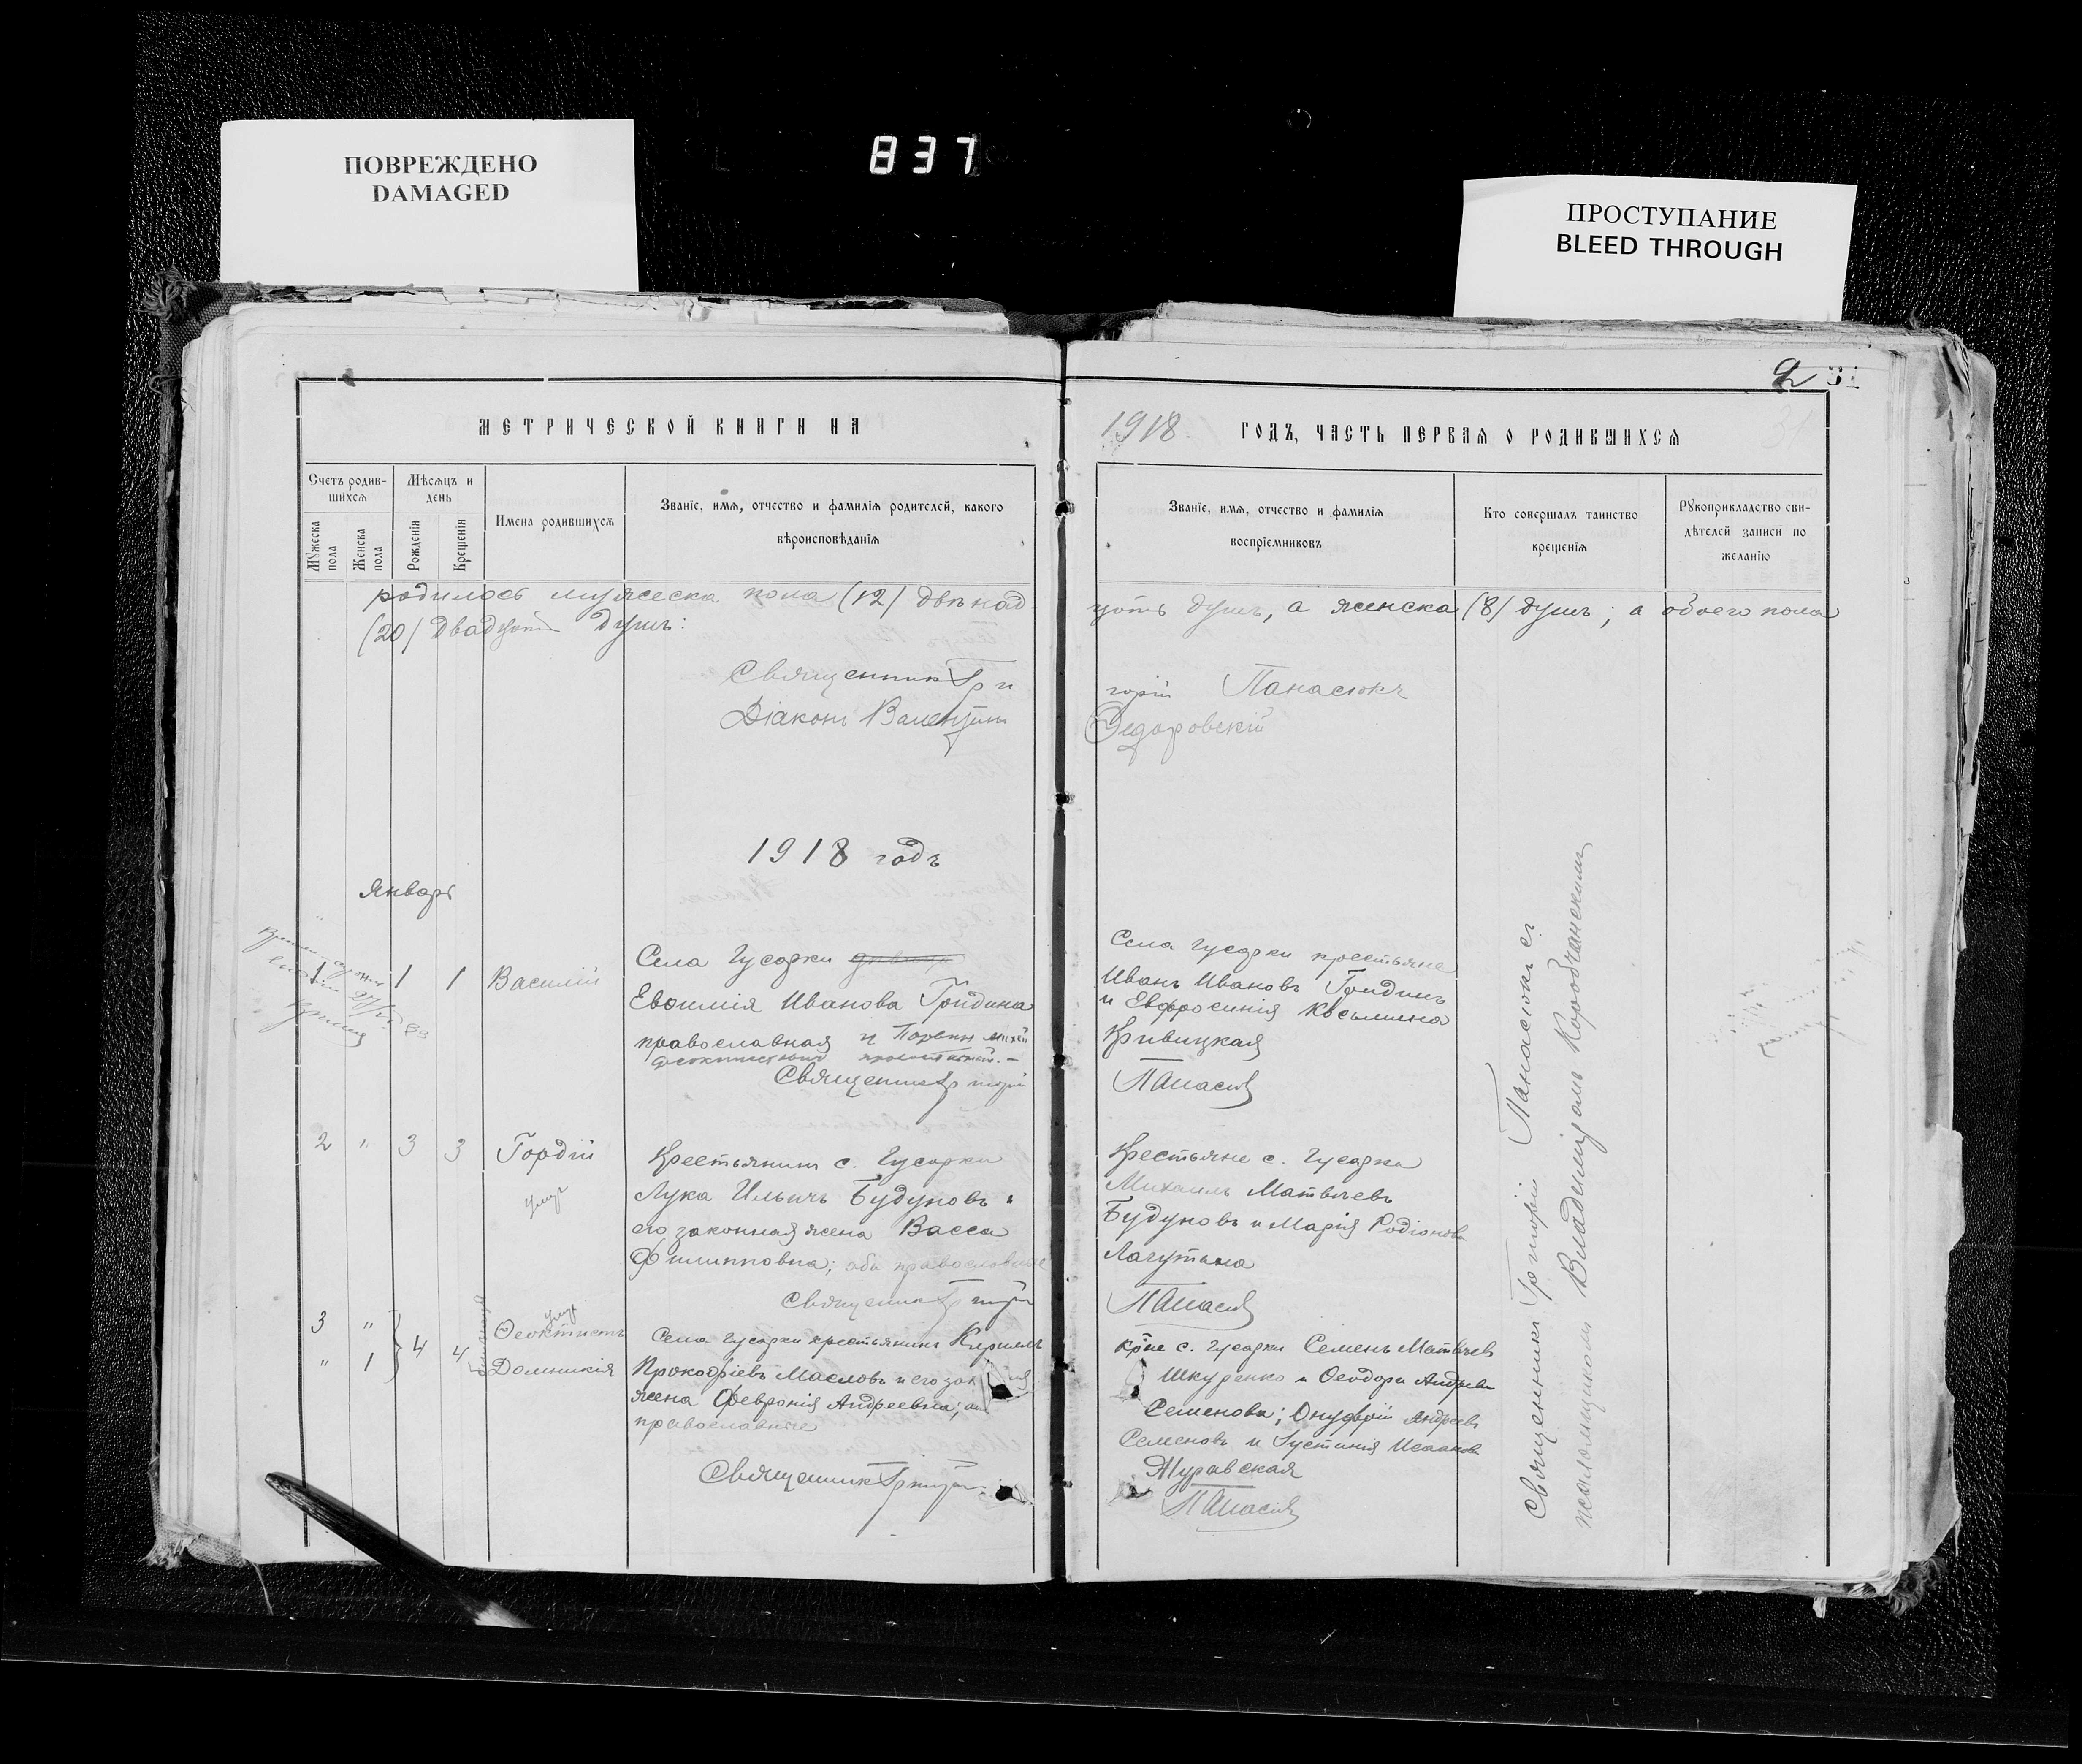 ПОВРЕЖДЕНО
DAMAGED
837
ПРОСТУПАНИЕ
BLEED THROUGH
МЕТРИЧЕСКОЙ КНИГИ НА
1918. ГОДЪ, ЧАСТЬ ПЕРВАЯ О РОДИВШИХСЯ
31
Счетъ родив-
шихся
Мѣсяцъ и
день
Мужеска
пола
Женска
пола
Рожденія
Крещенія
Имена родившихся
Званіе, имя, отчество и фамилія родителей, какого
вѣроисповѣданія
Званіе, имя, отчество и фамилія
воспріемниковъ
Кто совершалъ таинство
крещенія
Рукоприкладство сви-
дѣтелей записи по
желанію
родилось мужеска пола (12) двѣнад
цать душъ, а женска (8) душъ; а обоего пола
(20) двадцать душъ:
Священникъ Гри
горій Панасюкъ
Діаконъ Валентинъ
Федоровскій
1918 годъ
Январь
1 1 1 Василій
Села Гусарки
Евѳимія Иванова Гридина
православная и
Священникъ Григорій
Села Гусарки крестьяне
Иванъ Ивановъ Гридинъ
и Евфросинія Косьмина
Кривицкая
Панасюкъ
2 " 3 3 Гордій
умер
Крестьянинъ с. Гусарки
Лука Ильичъ Будуновъ и
его законная жена Васса
Филипповна; оба православные
Священникъ Григорій
Крестьяне с. Гусарки
Михаилъ Матвѣевъ
Будуновъ и Марія Родіонова
Лагутина
Панасюкъ
3 "
" 1
4 4
умер
Ѳеоктистъ
Домникія
близнецы
Села Гусарки крестьянинъ Кириллъ
Прокофіевъ Масловъ и его
жена Февронія Андреевна;
православные
Священникъ Григорій
кр-не с. Гусарки Семенъ Матвѣевъ
Шкуренко и Ѳеодора Андреева
Семенова; Онуфрій Андреевъ
Семеновъ и Іустинія Исаакова
Журавская
Панасюкъ
Священникъ Григорій Панасюкъ съ
псаломщикомъ Владиміромъ Коробчанскимъ